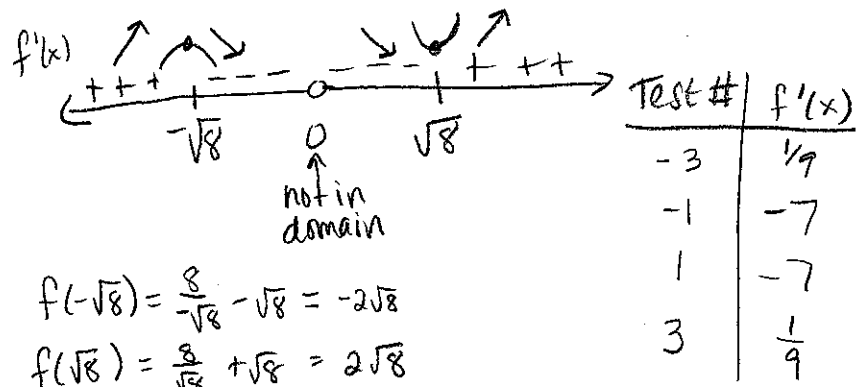 f'(x)
+ + + - - - - - - - + + +
-√8 0 √8
not in
domain
f(-√8) = 8/-√8 - √8 = -2√8
f(√8) = 8/√8 + √8 = 2√8
Test # f'(x)
-3 1/9
-1 -7
1 -7
3 1/9